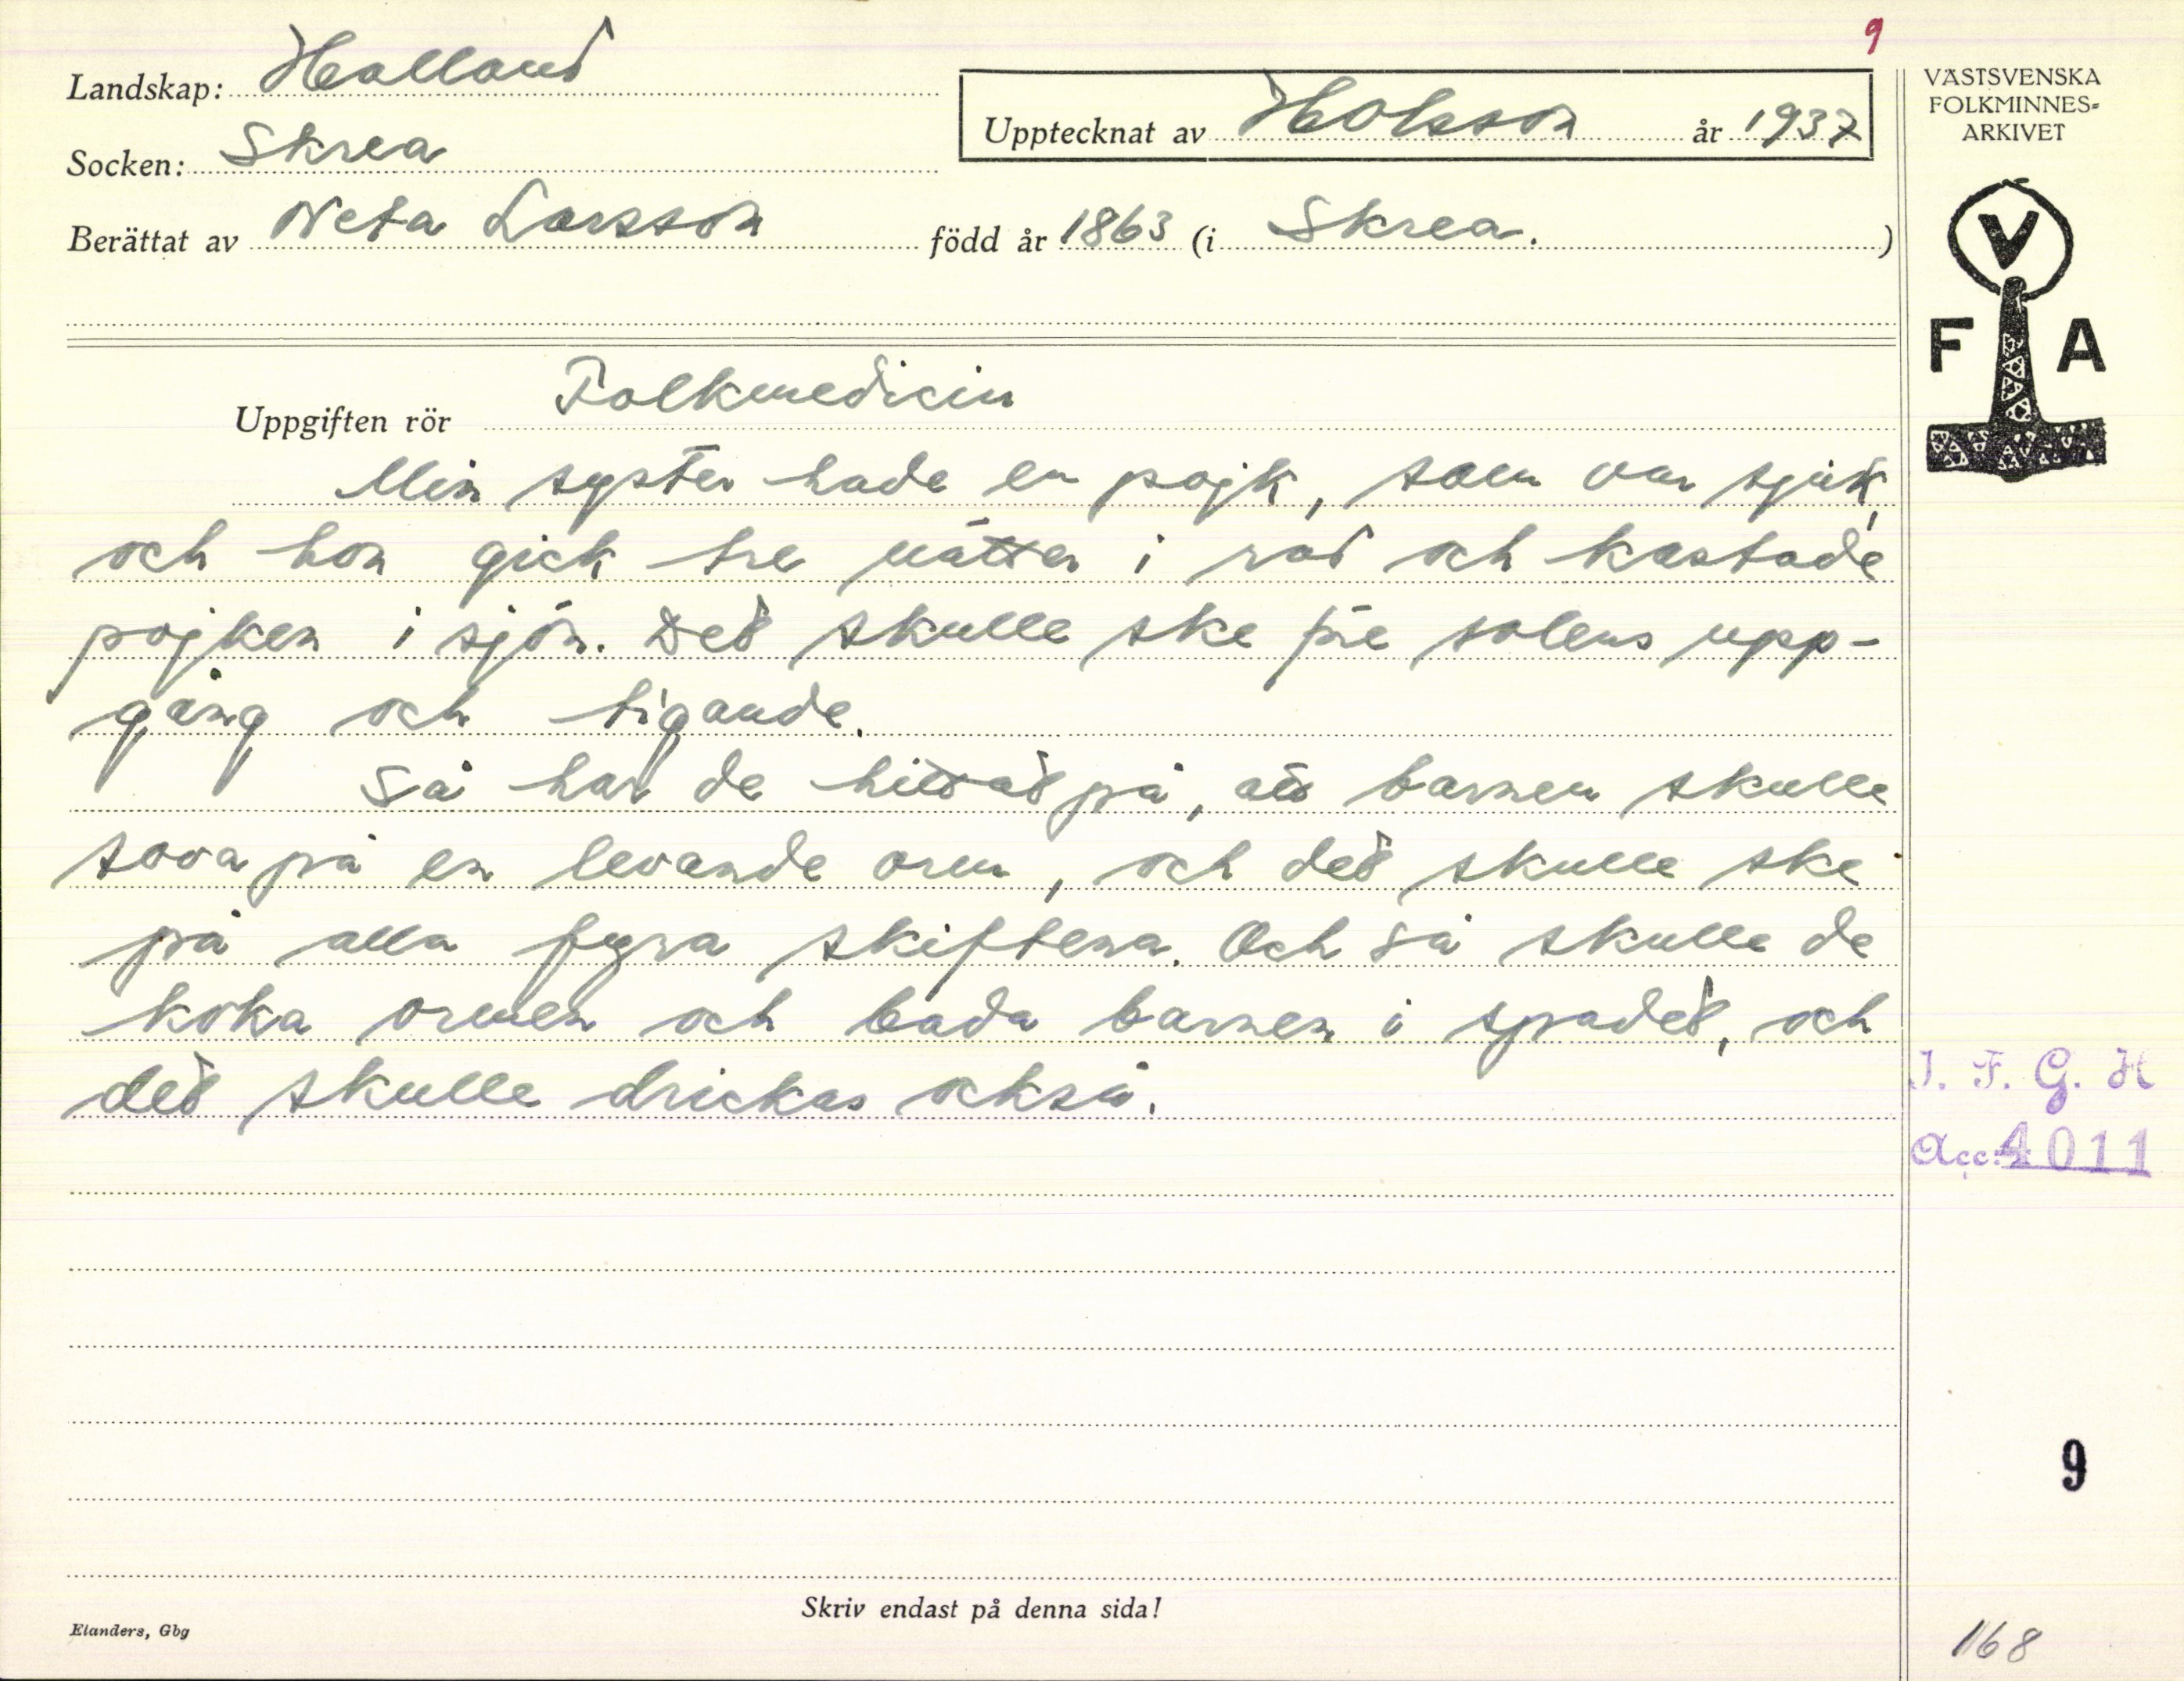 9
Landskap: Halland
Upptecknat av H Olsson år 1937
VÄSTSVENSKA
FOLKMINNES-
ARKIVET
Socken: Skrea
Berättat av Neta Larsson född år 1863 (i Skrea.)
V
F A
Uppgiften rör Folkmedicin
Min syster hade en pojk, som var sjuk,
och hon gick tre nätter i rad och kastade
pojken i sjön. Det skulle ske före solens upp-
gång och tigande.
Så har de hittat på, att barnen skulle
sova på en levande orm, och det skulle ske
på alla fyra skiftena. Och så skulle de
koka ormen och bada barnen i spadet, och
det skulle drickas också.
I. F. G. H
Acc. 4011
9
Skriv endast på denna sida!
Elanders, Gbg
168